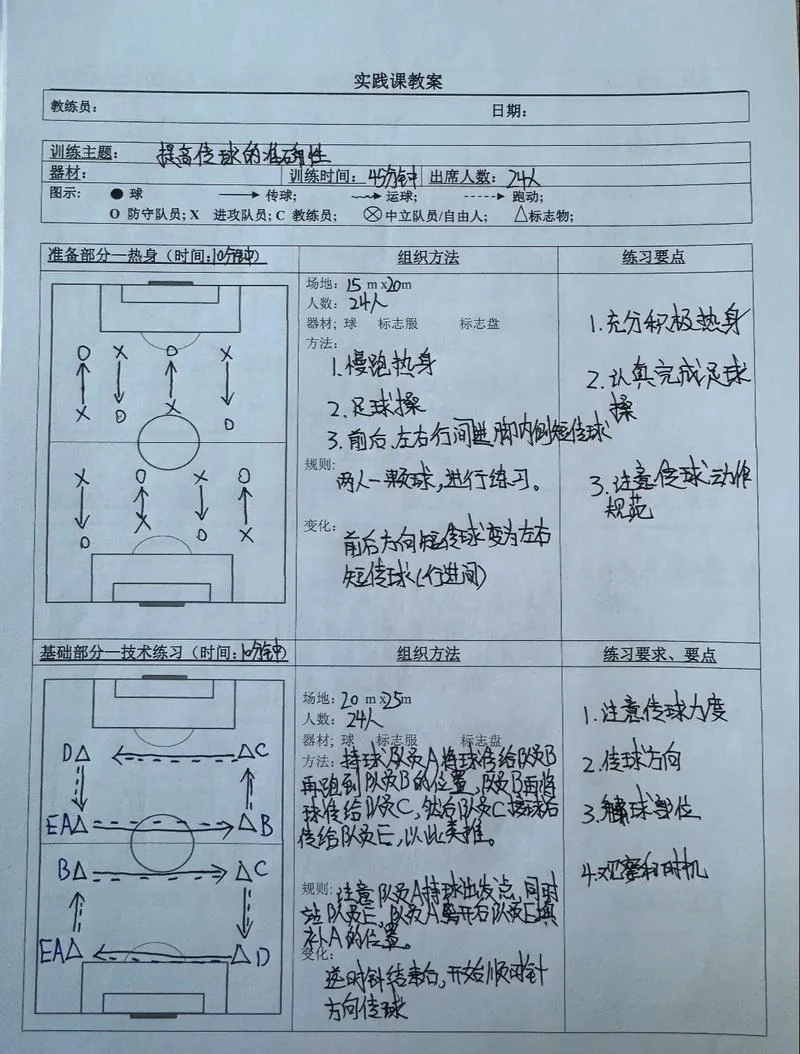 实践课教案
教练员： 日期：
训练主题： 提高传球的准确性
器材： 训练时间：45分钟 出席人数：24人
图示： ● 球 传球； 运球； 跑动；
O 防守队员；X 进攻队员；C 教练员； 中立队员/自由人； △标志物；
准备部分—热身（时间：10分钟） 组织方法 练习要点
O X O X
X O X O
X O X O
O X O X
场地：15 m x20m
人数：24人
器材；球 标志服 标志盘
方法：
1.慢跑热身
2.足球操
3.前后、左右行间进脚内侧短传球
规则：
两人一颗球，进行练习。
变化：
前后方向短传球变为左右
短传球（行进间）
1.充分积极热身
2.认真完成足球
操
3.注意传球动作
规范
基础部分—技术练习（时间：10分钟） 组织方法 练习要求、要点
D△ △C
EA△ △B
B△ △C
EA△ △D
场地：20 m x25m
人数：24人
器材；球 标志服 标志盘
方法：持球队员A将球传给队员B
再跑到队员B的位置，队员B再将
球传给队员C，然后队员C接球后
传给队员E，以此类推。
规则：注意队员A持球出发点，同时
站队员E，队员A离开后队员E填
补A的位置。
变化：
逆时针结束后，开始顺时针
方向传球
1.注意传球力度
2.传球方向
3.触球部位
4.观察和时机